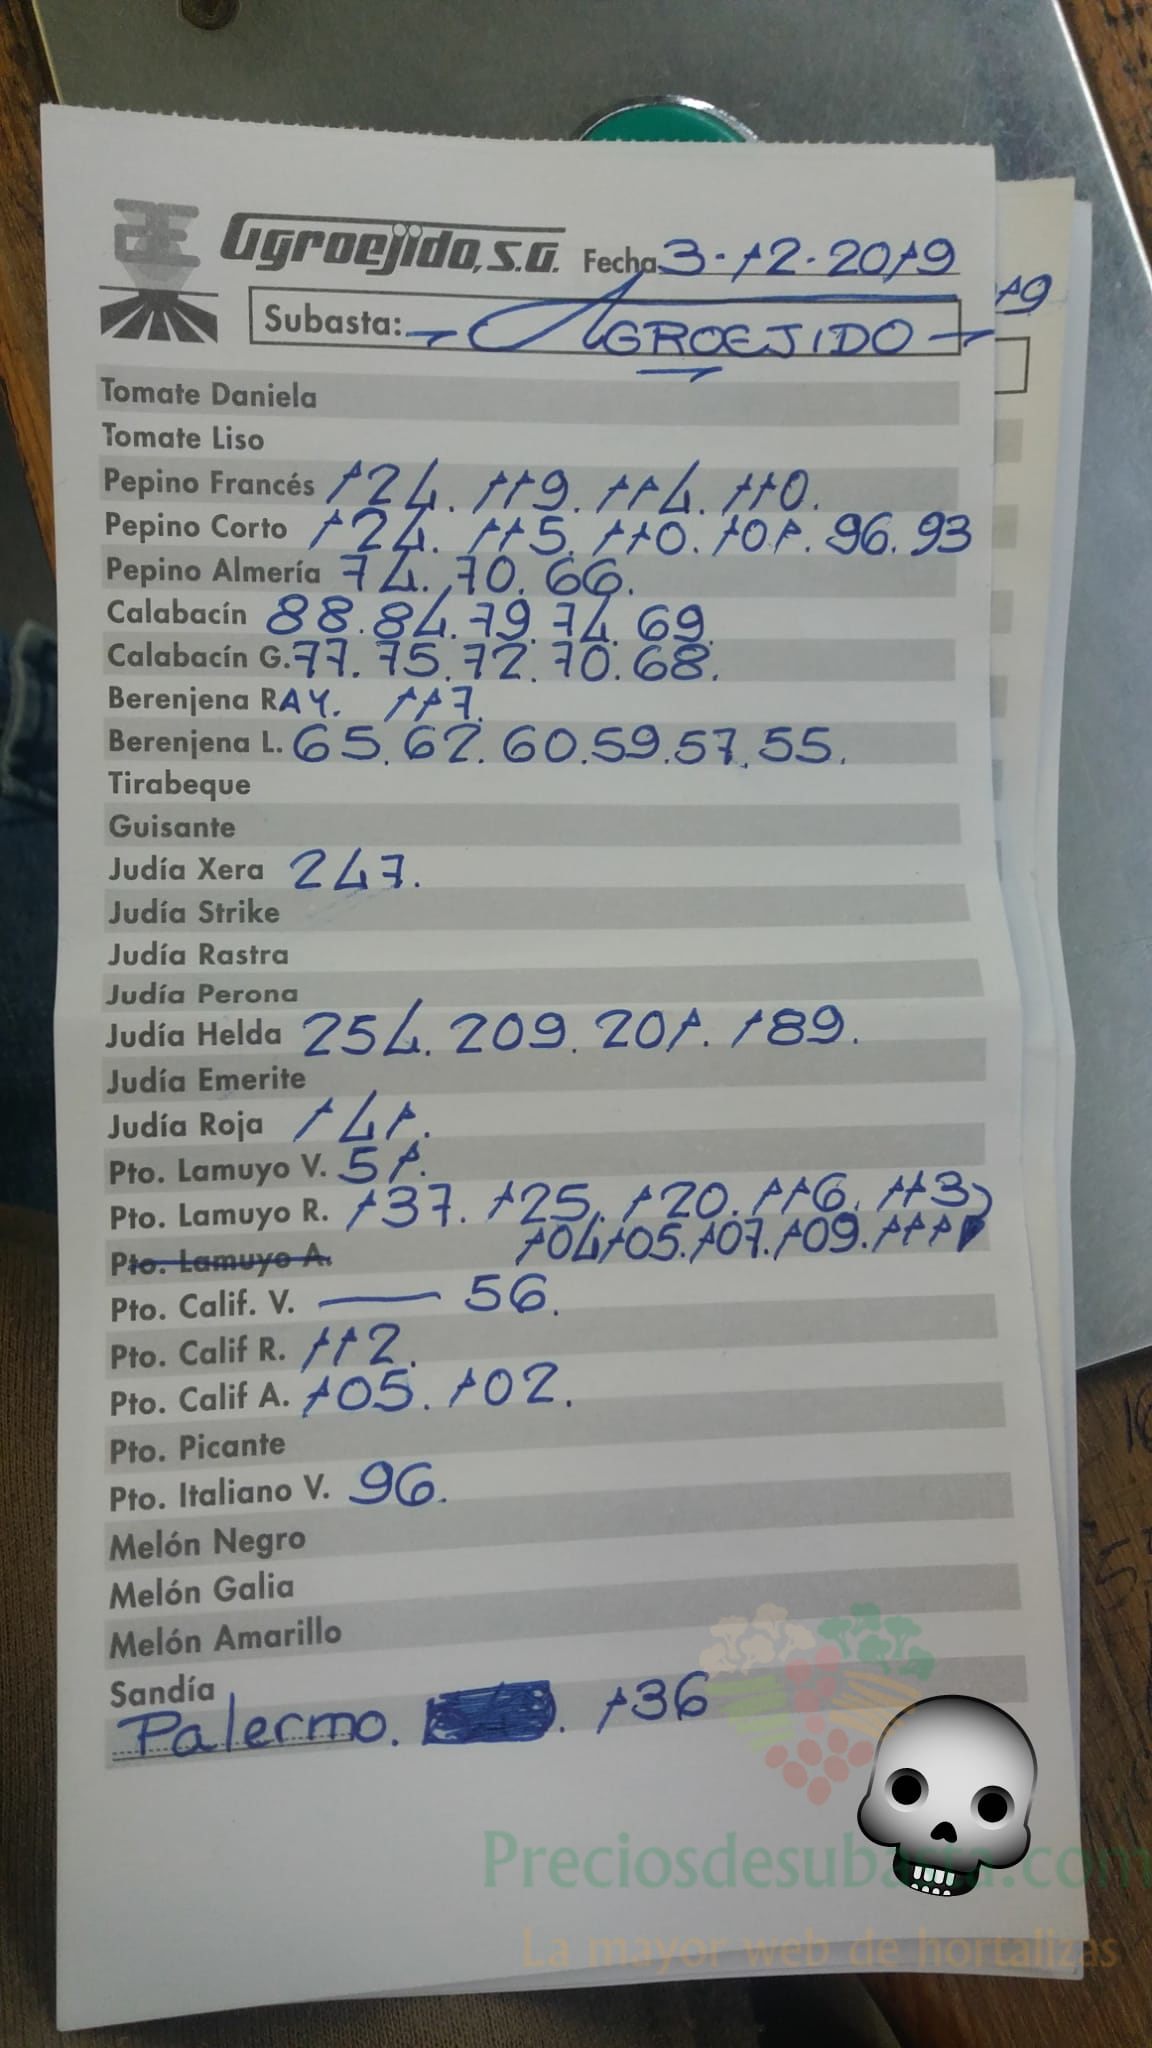 Agroejido, S.A. Fecha 3-12-2019
Subasta: AGROEJIDO
19
Tomate Daniela
Tomate Liso
Pepino Francés 124. 119. 114. 110.
Pepino Corto 124. 115. 110. 101. 96. 93
Pepino Almería 74. 70. 66.
Calabacín 88. 84. 79. 74. 69.
Calabacín G. 77. 75. 72. 70. 68.
Berenjena RAY. 117.
Berenjena L. 65. 62. 60. 59. 57. 55.
Tirabeque
Guisante
Judía Xera 247.
Judía Strike
Judía Rastra
Judía Perona
Judía Helda 254. 209. 201. 189.
Judía Emerite
Judía Roja 141.
Pto. Lamuyo V. 51.
Pto. Lamuyo R. 137. 125. 120. 116. 113
Pto. Lamuyo A. 104 105. 107. 109. 111
Pto. Calif. V. — 56.
Pto. Calif R. 112.
Pto. Calif A. 105. 102.
Pto. Picante
Pto. Italiano V. 96.
Melón Negro
Melón Galia
Melón Amarillo
Sandía
Palermo. 136
Preciosdesubasta.com
La mayor web de hortalizas